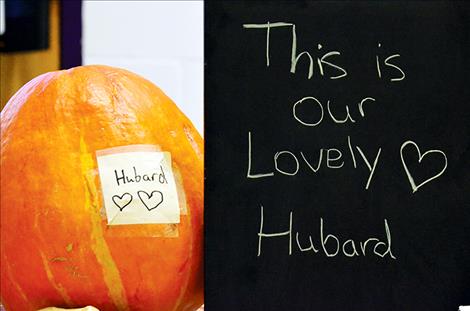 Hubard
♡♡
This is
our
Lovely ♡
Hubard